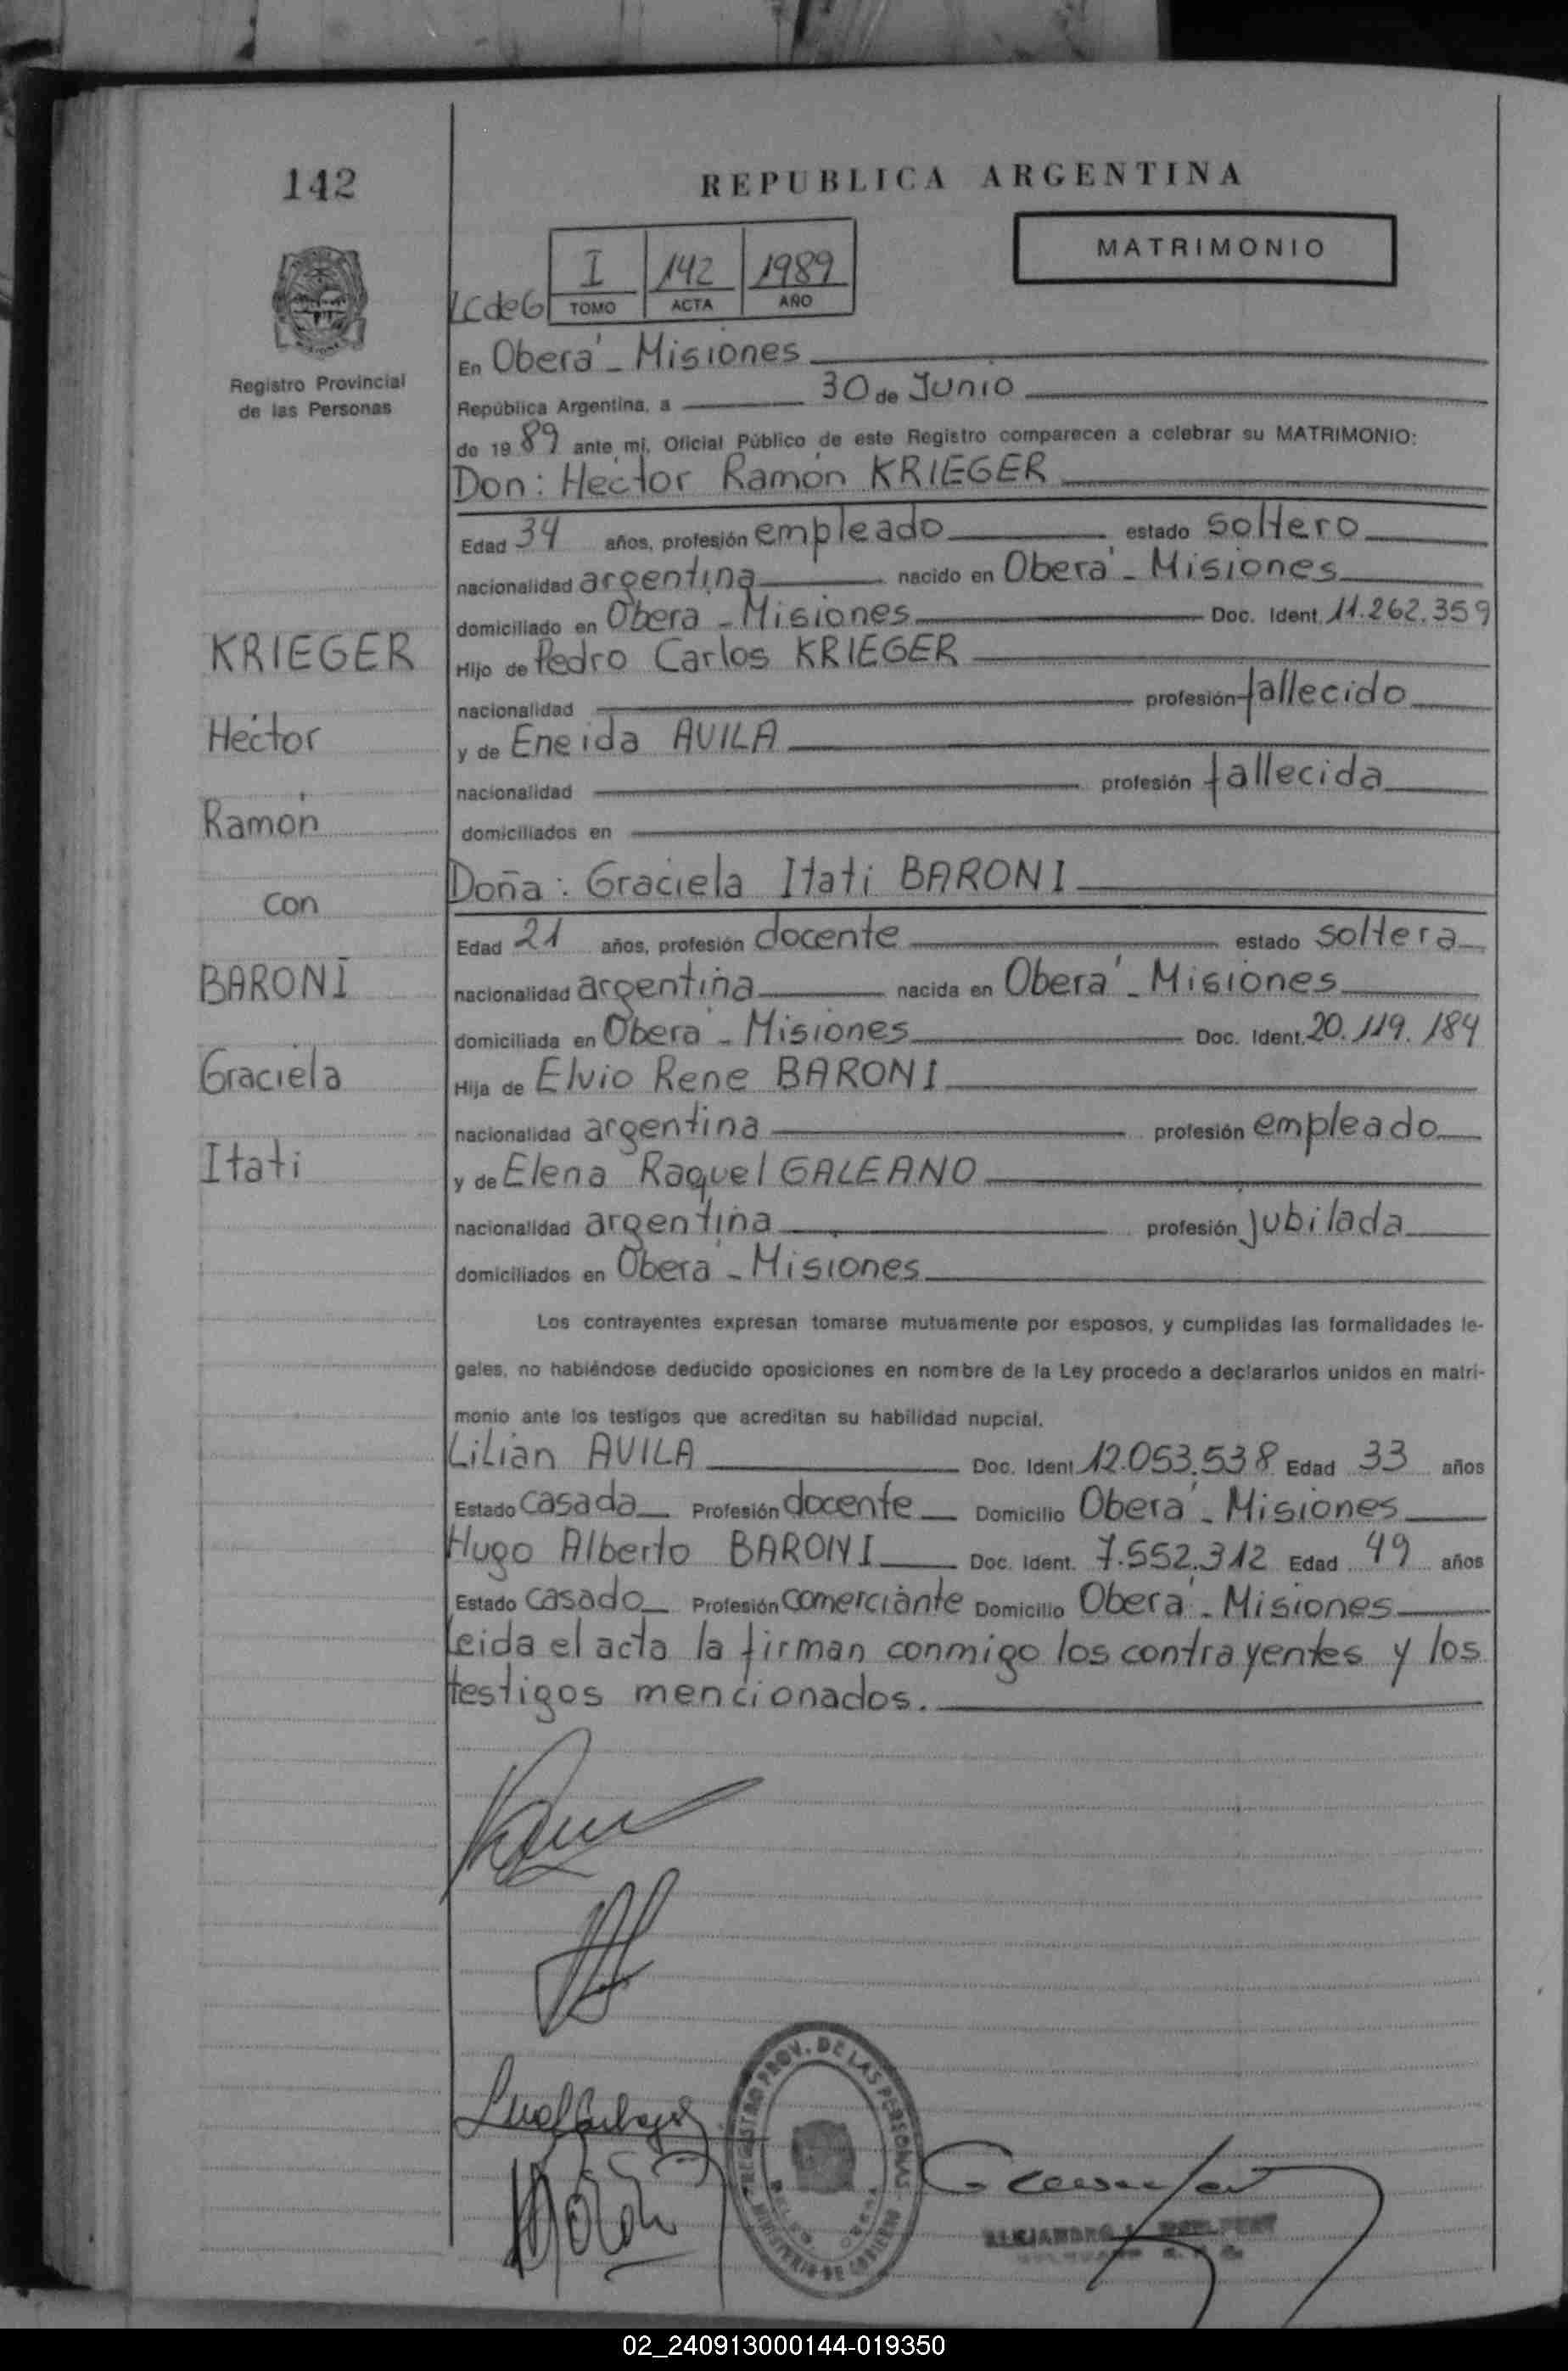 142
REPUBLICA ARGENTINA
MATRIMONIO
I 142 1989
LCdeG TOMO ACTA AÑO
Registro Provincial
de las Personas
En Oberá - Misiones
República Argentina, a 30 de Junio
de 1989 ante mi, Oficial Público de este Registro comparecen a celebrar su MATRIMONIO:
Don: Héctor Ramón KRIEGER
Edad 34 años, profesión empleado estado soltero
nacionalidad argentina nacido en Oberá - Misiones
domiciliado en Obera - Misiones Doc. Ident. 11.262.359
KRIEGER
Héctor
Ramón
con
BARONI
Graciela
Itati
Hijo de Pedro Carlos KRIEGER
nacionalidad profesión fallecido
y de Eneida AVILA
nacionalidad profesión fallecida
domiciliados en
Doña: Graciela Itati BARONI
Edad 21 años, profesión docente estado soltera
nacionalidad argentina nacida en Oberá - Misiones
domiciliada en Oberá - Misiones Doc. Ident. 20.119.184
Hija de Elvio Rene BARONI
nacionalidad argentina profesión empleado
y de Elena Raquel GALEANO
nacionalidad argentina profesión jubilada
domiciliados en Oberá - Misiones
Los contrayentes expresan tomarse mutuamente por esposos, y cumplidas las formalidades le-
gales, no habiéndose deducido oposiciones en nombre de la Ley procedo a declararlos unidos en matri-
monio ante los testigos que acreditan su habilidad nupcial.
Lilian AVILA Doc. Ident 12.053.538 Edad 33 años
Estado casada Profesión docente Domicilio Oberá - Misiones
Hugo Alberto BARONI Doc. Ident. 7.552.312 Edad 49 años
Estado casado Profesión comerciante Domicilio Oberá - Misiones
Leida el acta la firman conmigo los contrayentes y los
testigos mencionados.
REGISTRO PROV. DE LAS PERSONAS
MINISTERIO DE GOBIERNO
ALEJANDRO
02_240913000144-019350